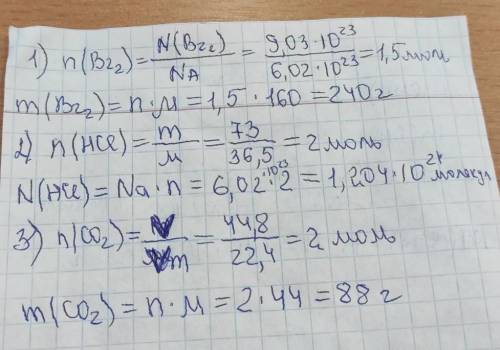 1) n(Br₂) = N(Br₂)/NA = 9,03·10²³/6,02·10²³ = 1,5 моль
m(Br₂) = n·M = 1,5·160 = 240 г
2) n(HCl) = m/M = 73/36,5 = 2 моль
N(HCl) = Na·n = 6,02·10²³·2 = 1,204·10²⁴ молекул
3) n(CO₂) = V/Vm = 44,8/22,4 = 2 моль
m(CO₂) = n·M = 2·44 = 88 г